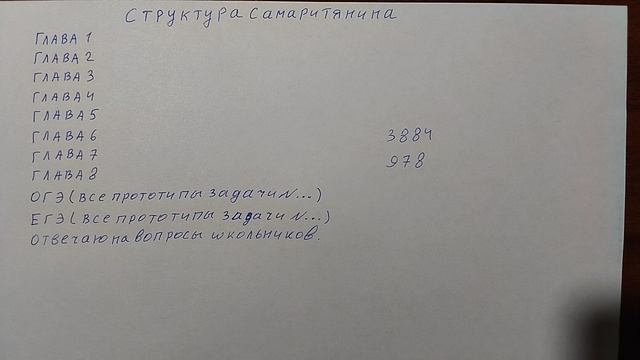 СТРУКТУРА САМАРИТЯНИНА
ГЛАВА 1
ГЛАВА 2
ГЛАВА 3
ГЛАВА 4
ГЛАВА 5
ГЛАВА 6 3884
ГЛАВА 7 978
ГЛАВА 8
ОГЭ (ВСЕ ПРОТОТИПЫ ЗАДАЧИ N...)
ЕГЭ (ВСЕ ПРОТОТИПЫ ЗАДАЧИ N...)
ОТВЕЧАЮ НА ВОПРОСЫ ШКОЛЬНИКОВ.